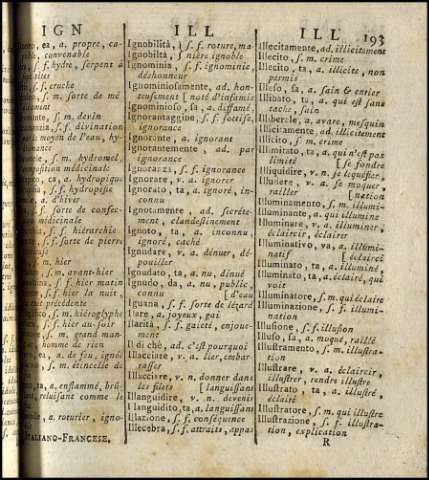 IGN
ILL
ILL
193
, ea, a. propre, ca-
, convenable
s. f. hydre, serpent à
s. f. cruche
, s. m. sorte de mé
, s. m. devin
, s. f. division
moyen de l'eau, hy-
s. m. hydromel
médicinale
, ca, a. hydropique
s. f. hydropisie
a. d'hiver
s. f. sorte de confec-
médicinale
, s. f. hiérarchie
s. f. sorte de pierre
s. m. hier
, s. m. avant-hier
s. f. hier matin
s. f. hier la nuit,
précédente
s. m. hiéroglyphe
s. f. hier au-soir
s. m. grand man-
homme de rien
ea, a. de feu, igné
s. m. étincelle de
ta, a. enflammé, brû-
reluisant comme le
a. roturier, igno-
ITALIANO-FRANCESE.
Ignobilità, s. f. roture, ma-
Ignobiltà, nière ignoble
Ignominia, s. f. ignominie,
déshonneur
Ignominiosamente, ad. hon-
teusement [noté d'infamie
Ignominioso, sa, a. diffamé,
Ignorantaggine, s. f. sottise,
ignorance
Ignorante, a. ignorant
Ignorantemente, ad. par
ignorance
Ignoranza, s. f. ignorance
Ignorare, v. a. ignorer
Ignorato, ta, a. ignoré, in-
connu
Ignotamente, ad. secréte-
ment, clandestinement
Ignoto, ta, a. inconnu,
ignoré, caché
Ignudare, v. a. dénuer, dé-
pouiller
Ignudato, ta, a. nu, dénué
Ignudo, da, a. nu, public,
connu [d'eau
Iguana, s. f. sorte de lézard
Ilare, a. joyeux, gai
Ilarità, s. f. gaieté, enjoue-
ment
Il di chè, ad. c'est pourquoi
Illacciare, v. a. lier, embar-
rasser
Illacciare, v. n. donner dans
les filets [languissant
Illanguidire, v. n. devenir
Illanguidito, ta, a. languissant
Illazione, s. f. conséquence
Illecebra, s. f. attraits, appas
Illecitamente, ad. illicitement
Illecito, s. m. crime
Illecito, ta, a. illicite, non
permis
Illeso, sa, a. sain & entier
Illibato, ta, a. qui est sans
tache, sain
Illiberale, a. avare, mesquin
Illicitamente, ad. illicitement
Illicito, s. m. crime
Illimitato, ta, a. qui n'est pas
limité [se fondre
Illiquidire, v. n. se liquéfier,
Illudere, v. a. se moquer,
railler [nation
Illuminamento, s. m. illumi-
Illuminante, a. qui illumine
Illuminare, v. a. illuminer,
éclaircir, éclairer
Illuminativo, va, a. illumi-
natif [éclairci
Illuminato, ta, a. illuminé,
Illuminato, ta, a. éclairé, qui
voit
Illuminatore, s. m. qui éclaire
Illuminazione, s. f. illumi-
nation
Illusione, s. f. illusion
Illuso, sa, a. moqué, raillé
Illustramento, s. m. illustra-
tion
Illustrare, v. a. éclaircir,
illustrer, rendre illustre
Illustrato, ta, a. illustré,
éclairé
Illustratore, s. m. qui illustre
Illustrazione, s. f. illustra-
tion, explication
R